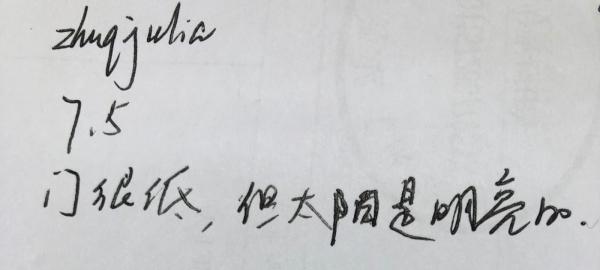 zhuqjulia
7.5
门很低, 但太阳是明亮的.